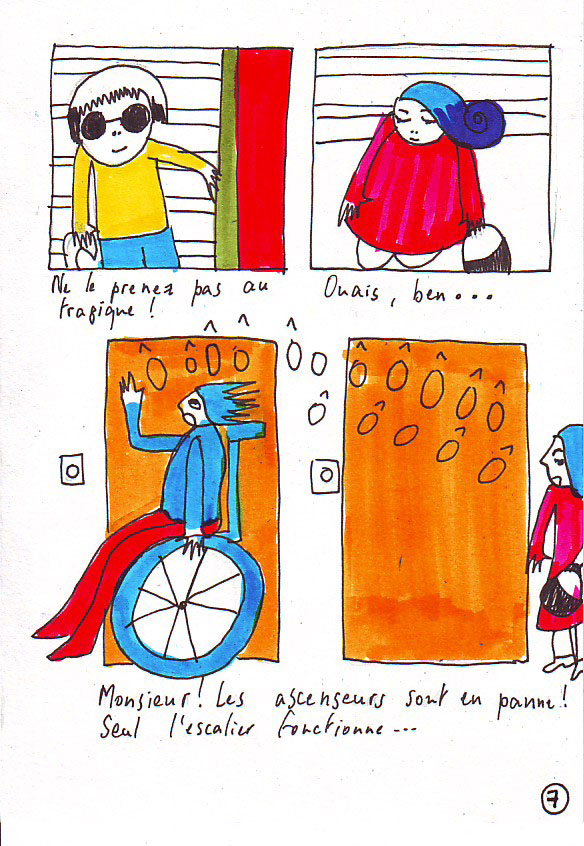 Ne le prenez pas au
tragique !
Ouais, ben...
Ô Ô Ô Ô Ô O Ô Ô Ô Ô Ô
Ô Ô O Ô Ô
Monsieur! Les ascenseurs sont en panne!
Seul l'escalier fonctionne...
7